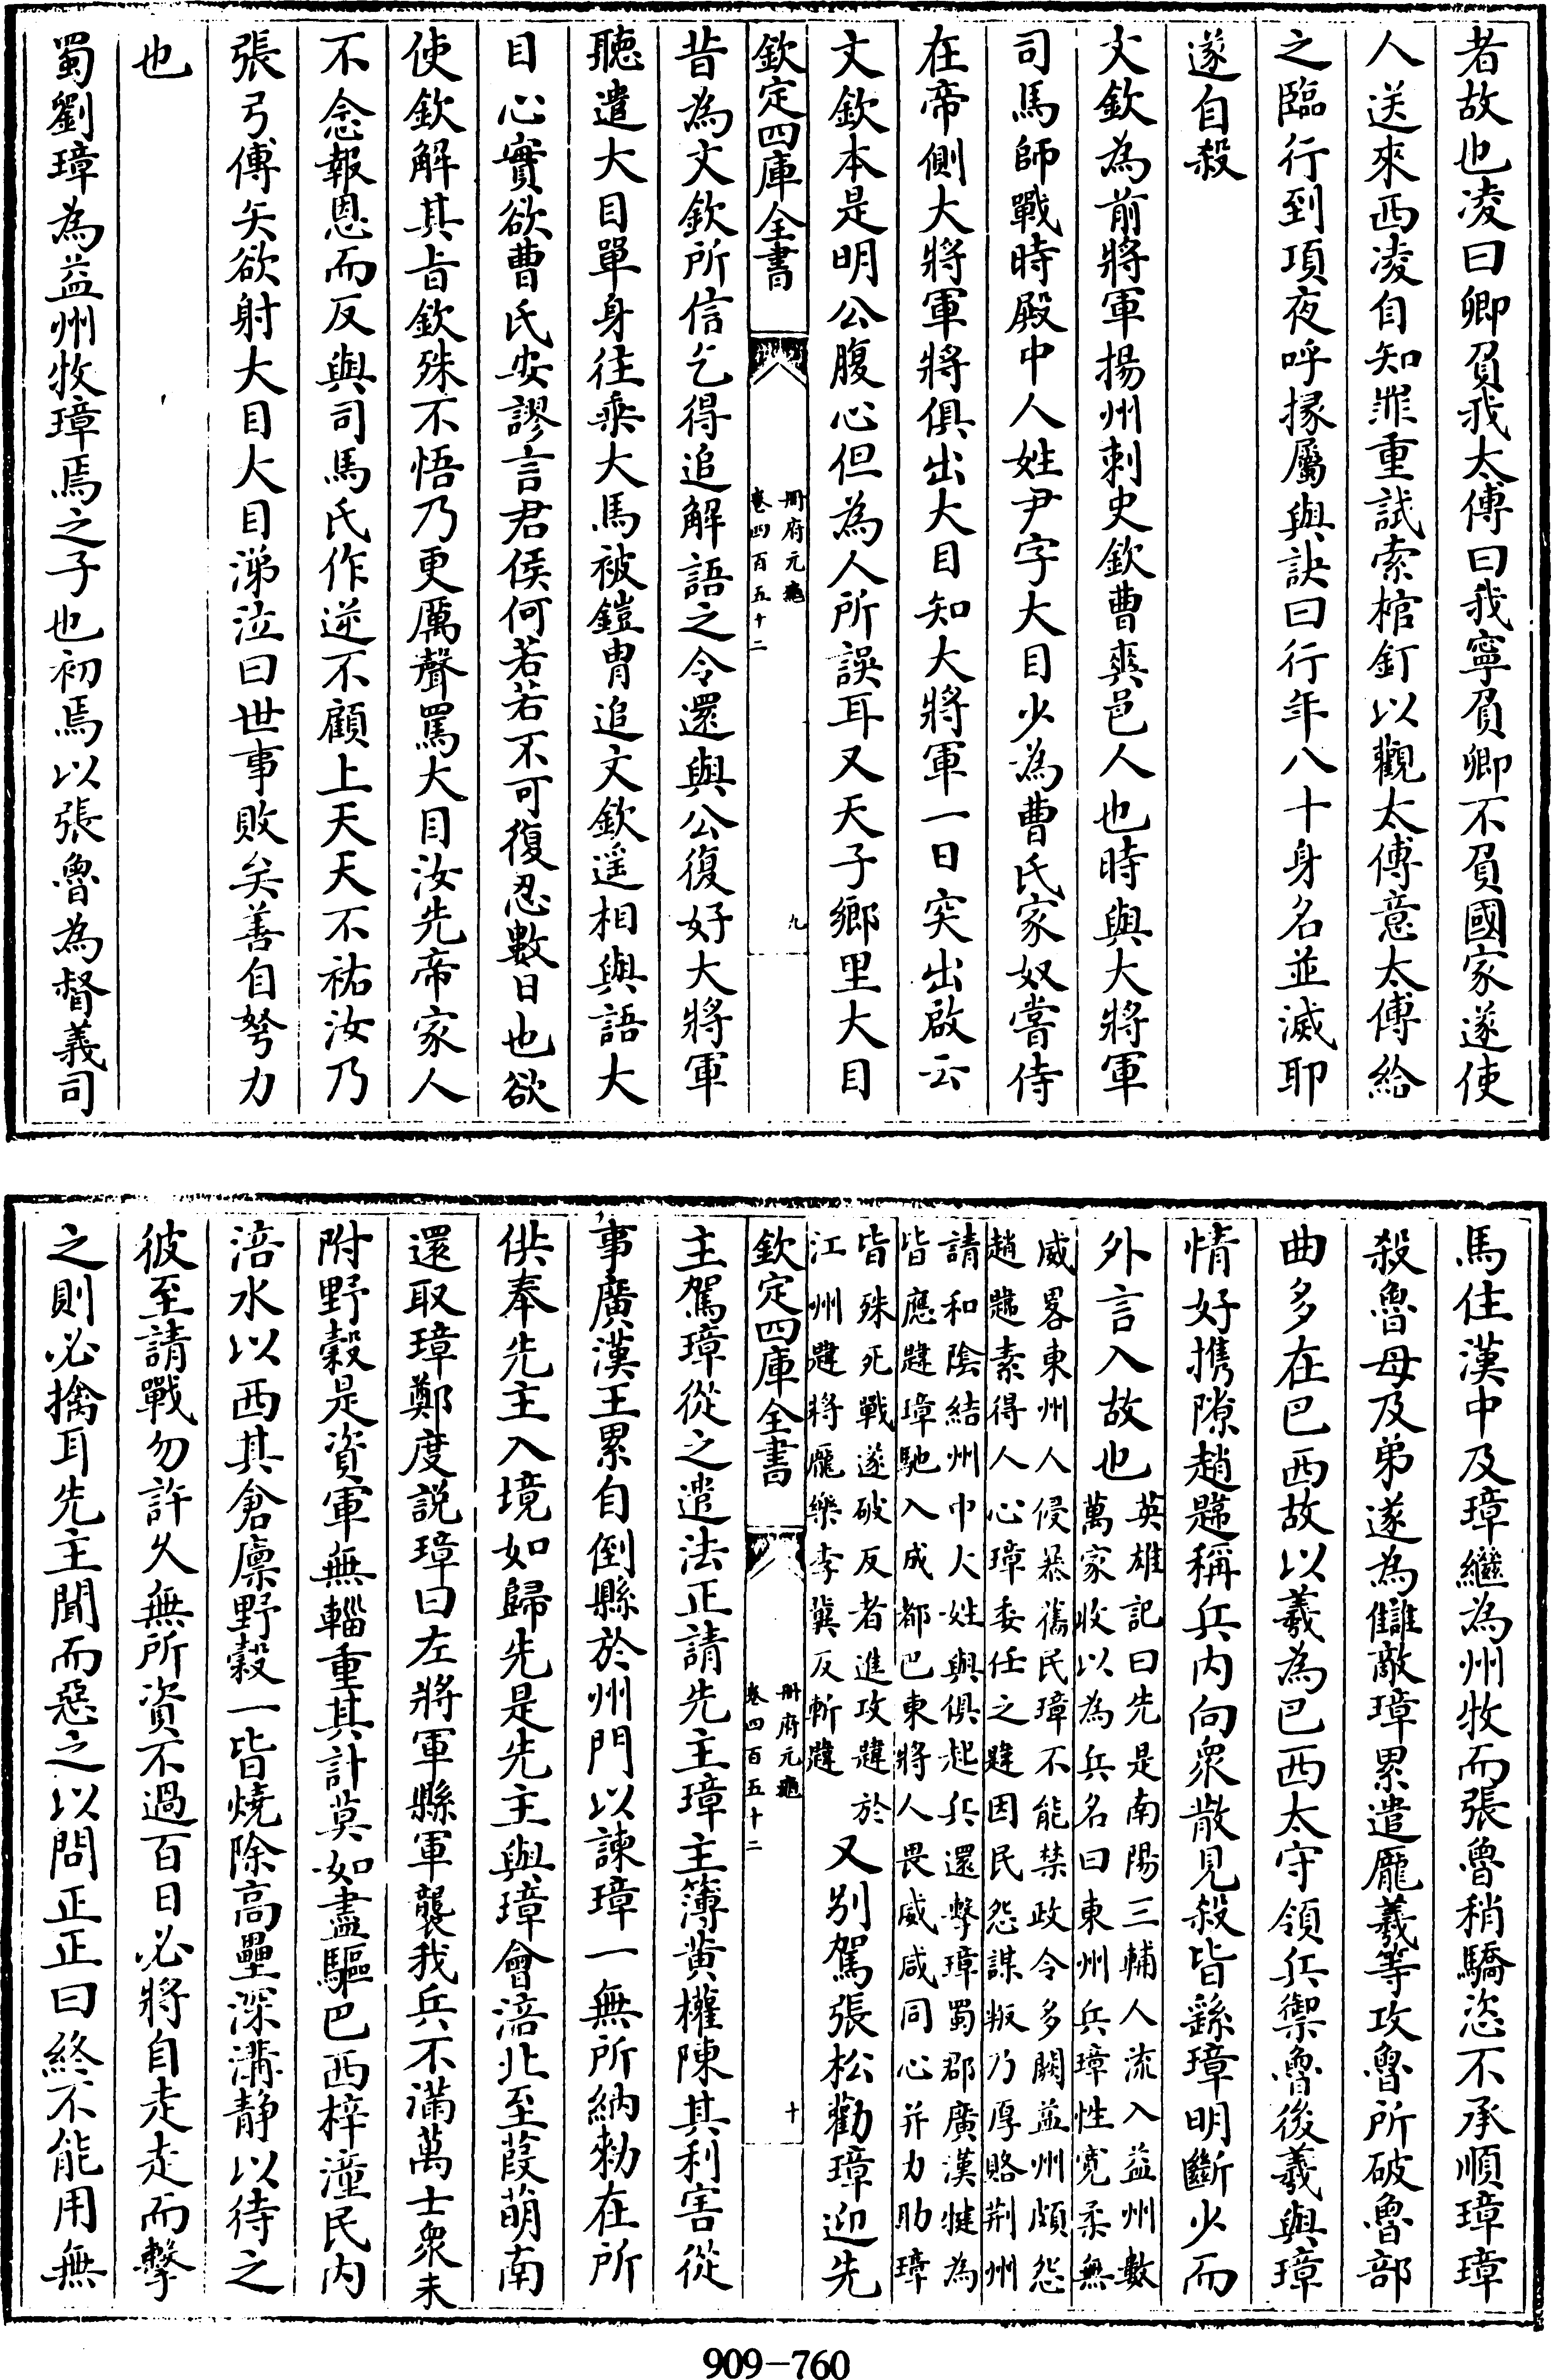 者故也凌曰卿負我太傅曰我寧負卿不負國家遂使
人送來西凌自知罪重試索棺釘以觀太傅意太傅給
之臨行到項夜呼掾屬與訣曰行年八十身名並滅耶
遂自殺
文欽為前將軍揚州刺史欽曹爽邑人也時與大將軍
司馬師戰時殿中人姓尹字大目少為曹氏家奴嘗侍
在帝側大將軍將俱出大目知大將軍一日突出啟云
文欽本是明公腹心但為人所誤耳又天子鄉里大目
欽定四庫全書
冊府元龜
卷四百五十二
九
昔為文欽所信乞得追解語之令還與公復好大將軍
聽遣大目單身往乘大馬被鎧胄追文欽遥相與語大
目心實欲曹氏安謬言君侯何若若不可復忍數日也欲
使欽解其旨欽殊不悟乃更厲聲罵大目汝先帝家人
不念報恩而反與司馬氏作逆不顧上天天不祐汝乃
張弓傅矢欲射大目大目涕泣曰世事敗矣善自努力
也
蜀劉璋為益州牧璋焉之子也初焉以張魯為督義司
馬住漢中及璋繼為州牧而張魯稍驕恣不承順璋璋
殺魯母及弟遂為讎敵璋累遣龐羲等攻魯所破魯部
曲多在巴西故以羲為巴西太守領兵禦魯後羲與璋
情好携隙趙韙稱兵内向衆散見殺皆繇璋明斷少而
外言入故也
英雄記曰先是南陽三輔人流入益州數
萬家收以為兵名曰東州兵璋性寛柔無
威畧東州人侵暴舊民璋不能禁政令多闕益州頗怨
趙韙素得人心璋委任之韙因民怨謀叛乃厚賂荆州
請和陰結州中大姓與俱起兵還擊璋蜀郡廣漢犍為
皆應韙璋馳入成都巴東將人畏威咸同心并力助璋
皆殊死戰遂破反者進攻韙於
江州韙將龐樂李冀反斬韙
又别駕張松勸璋迎先
欽定四庫全書
冊府元龜
卷四百五十二
十
主駕璋從之遣法正請先主璋主簿黄權陳其利害從
事廣漢王累自倒縣於州門以諫璋一無所納勑在所
供奉先主入境如歸先是先主與璋會涪北至葭萌南
還取璋鄭度說璋曰左將軍縣軍襲我兵不滿萬士衆未
附野穀是資軍無輜重其計莫如盡驅巴西梓潼民内
涪水以西其倉廪野穀一皆燒除高壘深溝静以待之
彼至請戰勿許久無所資不過百日必將自走走而擊
之則必擒耳先主聞而惡之以問正正曰終不能用無
909-760